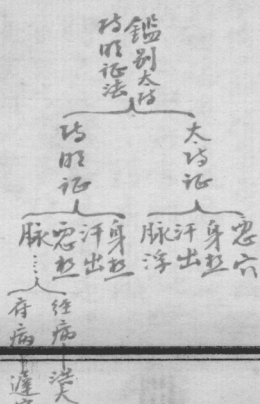 鑑别太阳
阳明证法
太阳证
恶寒
身热
汗出
脉浮
阳明证
身热
汗出
恶热
脉……
经病 洪大
府病 遲